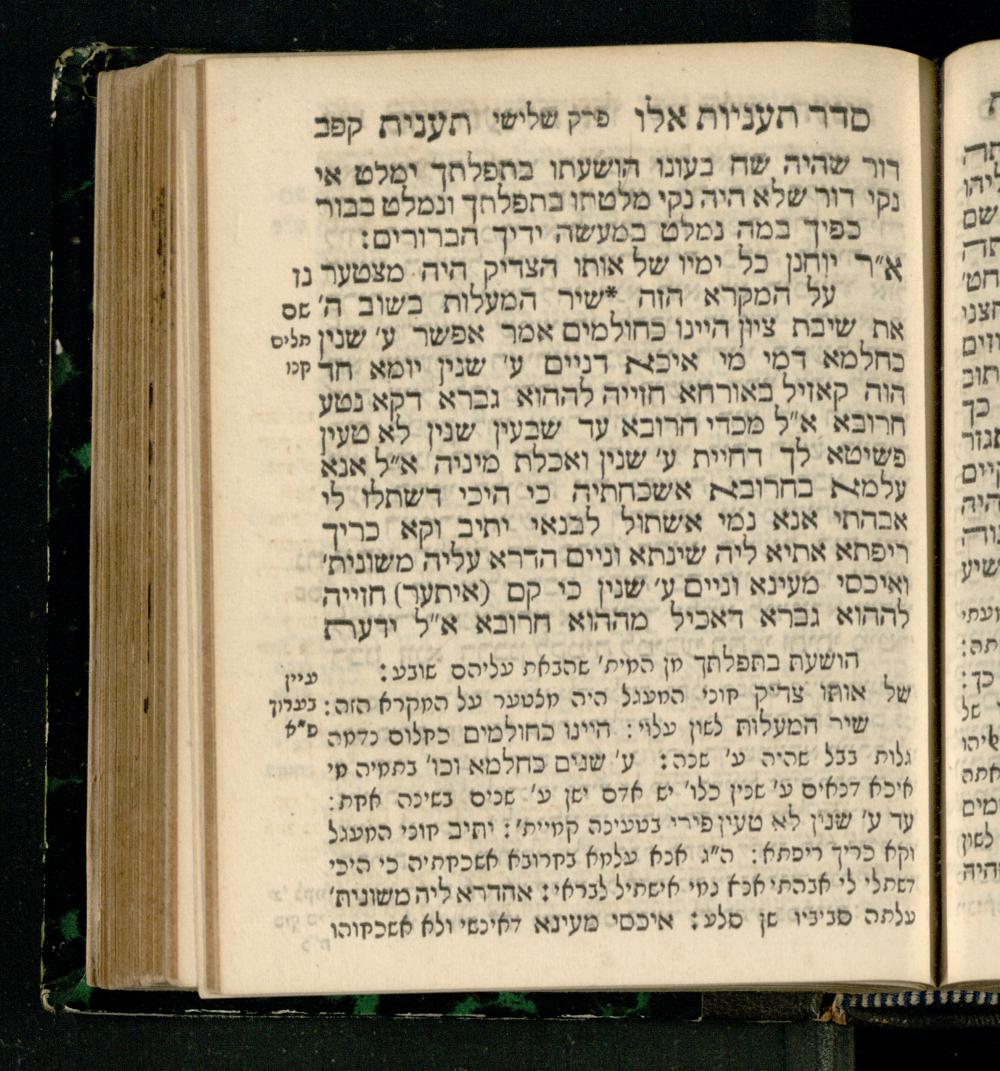 סדר תעניות אלו פרק שלישי תענית קפב
דור שהיה שח בעונו הושעתו בתפלתך ימלט אי
נקי דור שלא היה נקי מלטתו בתפלתך ונמלט בבור
כפיך במה נמלט במעשה ידיך הברורים:
א״ר יוחנן כל ימיו של אותו הצדיק היה מצטער נז
על המקרא הזה *שיר המעלות בשוב ה' שם
את שיבת ציון היינו כחולמים אמר אפשר ע' שנין תלים
כחלמא דמי מי איכא דניים ע' שנין יומא חד קכו
הוה קאזיל באורחא חזייה לההוא גברא דקא נטע
חרובא א״ל מכדי חרובא עד שבעין שנין לא טעין
פשיטא לך דחיית ע' שנין ואכלת מיניה א״ל אנא
עלמא בחרובא אשכחתיה כי היכי דשתלו לי
אבהתי אנא נמי אשתול לבנאי יתיב וקא כריך
ריפתא אתיא ליה שינתא וניים הדרא עליה משונית'
ואיכסי מעינא וניים ע' שנין כי קם (איתער) חזייה
לההוא גברא דאכיל מההוא חרובא א״ל ידערת
הושעת בתפלתך מן המית' שהבאת עליהם שובע: עיין
של אותו צדיק חוני המעגל היה מצטער על המקרא הזה: בערוך
שיר המעלות לשון עלוי: היינו כחולמים כחלום נדמה
גלות בבל שהיה ע' שנה: ע' שנים כחלמא וכו' בתמיה מי
איכא דנאים ע' שנין כלו' יש אדם ישן ע' שנים בשינה אחת:
עד ע' שנין לא טעין פירי בטעינה קמיית': יתיב חוני המעגל
וקא כריך ריפתא: ה״ג אנא עלמא בחרובא אשכחתיה כי היכי
דשתלי לי אבהתי אנא נמי אישתיל לבראי: אהדרא ליה משונית'
עלתה סביביו שן סלע: איכסי מעינא דאינשי ולא אשכחוהו